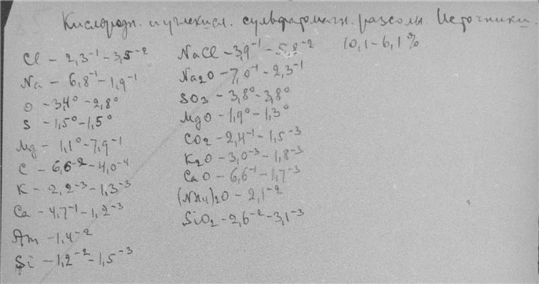 Кислородн. и углекисл. сульфатомагн. рассолы. Источники.
Cl – 2,3⁻¹ – 3,5⁻²
Na – 6,8⁻¹ – 1,9⁻¹
O – 3,4⁰ – 2,8⁰
S – 1,5⁰ – 1,5⁰
Mg – 1,1⁰ – 7,9⁻¹
C – 6,6⁻² – 4,0⁻⁴
K – 2,2⁻³ – 1,3⁻³
Ca – 4,7⁻¹ – 1,2⁻³
Am – 1,4⁻²
Si – 1,2⁻² – 1,5⁻³
NaCl – 3,9⁻¹ – 5,8⁻² 10,1 – 6,1%
Na2O – 7,0⁻¹ – 2,3⁻¹
SO3 – 3,8⁰ – 3,8⁰
MgO – 1,9⁰ – 1,3⁰
CO2 – 2,4⁻¹ – 1,5⁻³
K2O – 3,0⁻³ – 1,8⁻³
CaO – 6,6⁻¹ – 1,7⁻³
(NH4)2O – 2,1⁻²
SiO2 – 2,6⁻² – 3,1⁻³